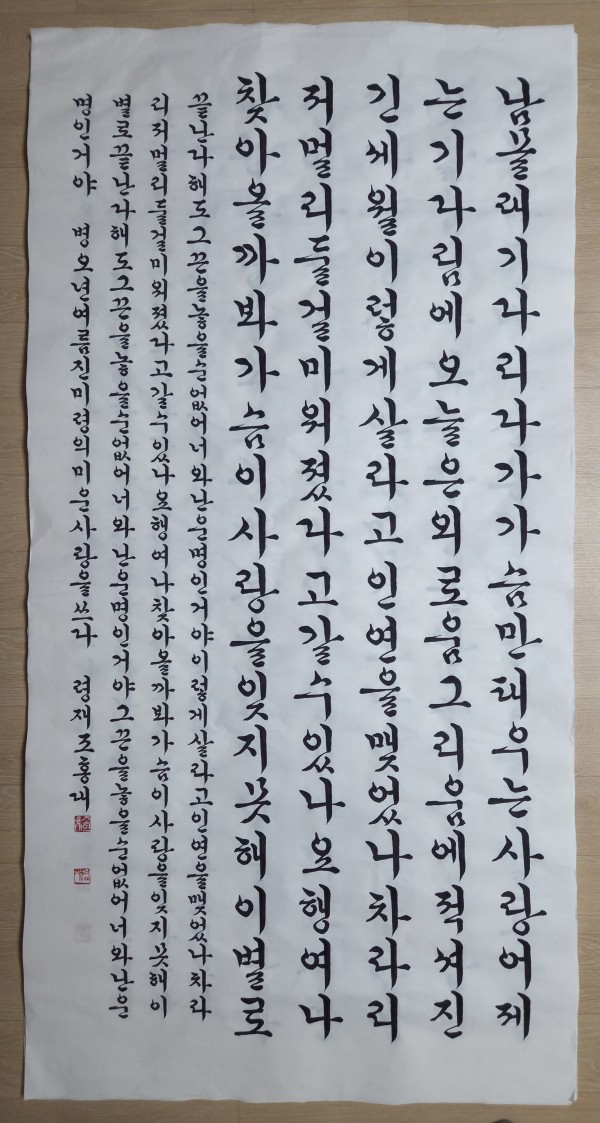 남몰래기다리다가가슴만태우는사랑어제
는기다림에오늘은외로움그리움에적셔진
긴세월이렇게살라고인연을맺었나차라리
저멀리둘걸미워졌다고갈수있나요행여나
찾아올까봐가슴이사랑을잊지못해이별로
끝난다해도그끈을놓을순없어너와난운명인거야이렇게살라고인연을맺었나차라
리저멀리둘걸미워졌다고갈수있나요행여나찾아올까봐가슴이사랑을잊지못해이
별로끝난다해도그끈을놓을순없어너와난운명인거야그끈을놓을순없어너와난운
명인거야 병오년여름진미령의미운사랑을쓰다 령재조홍내